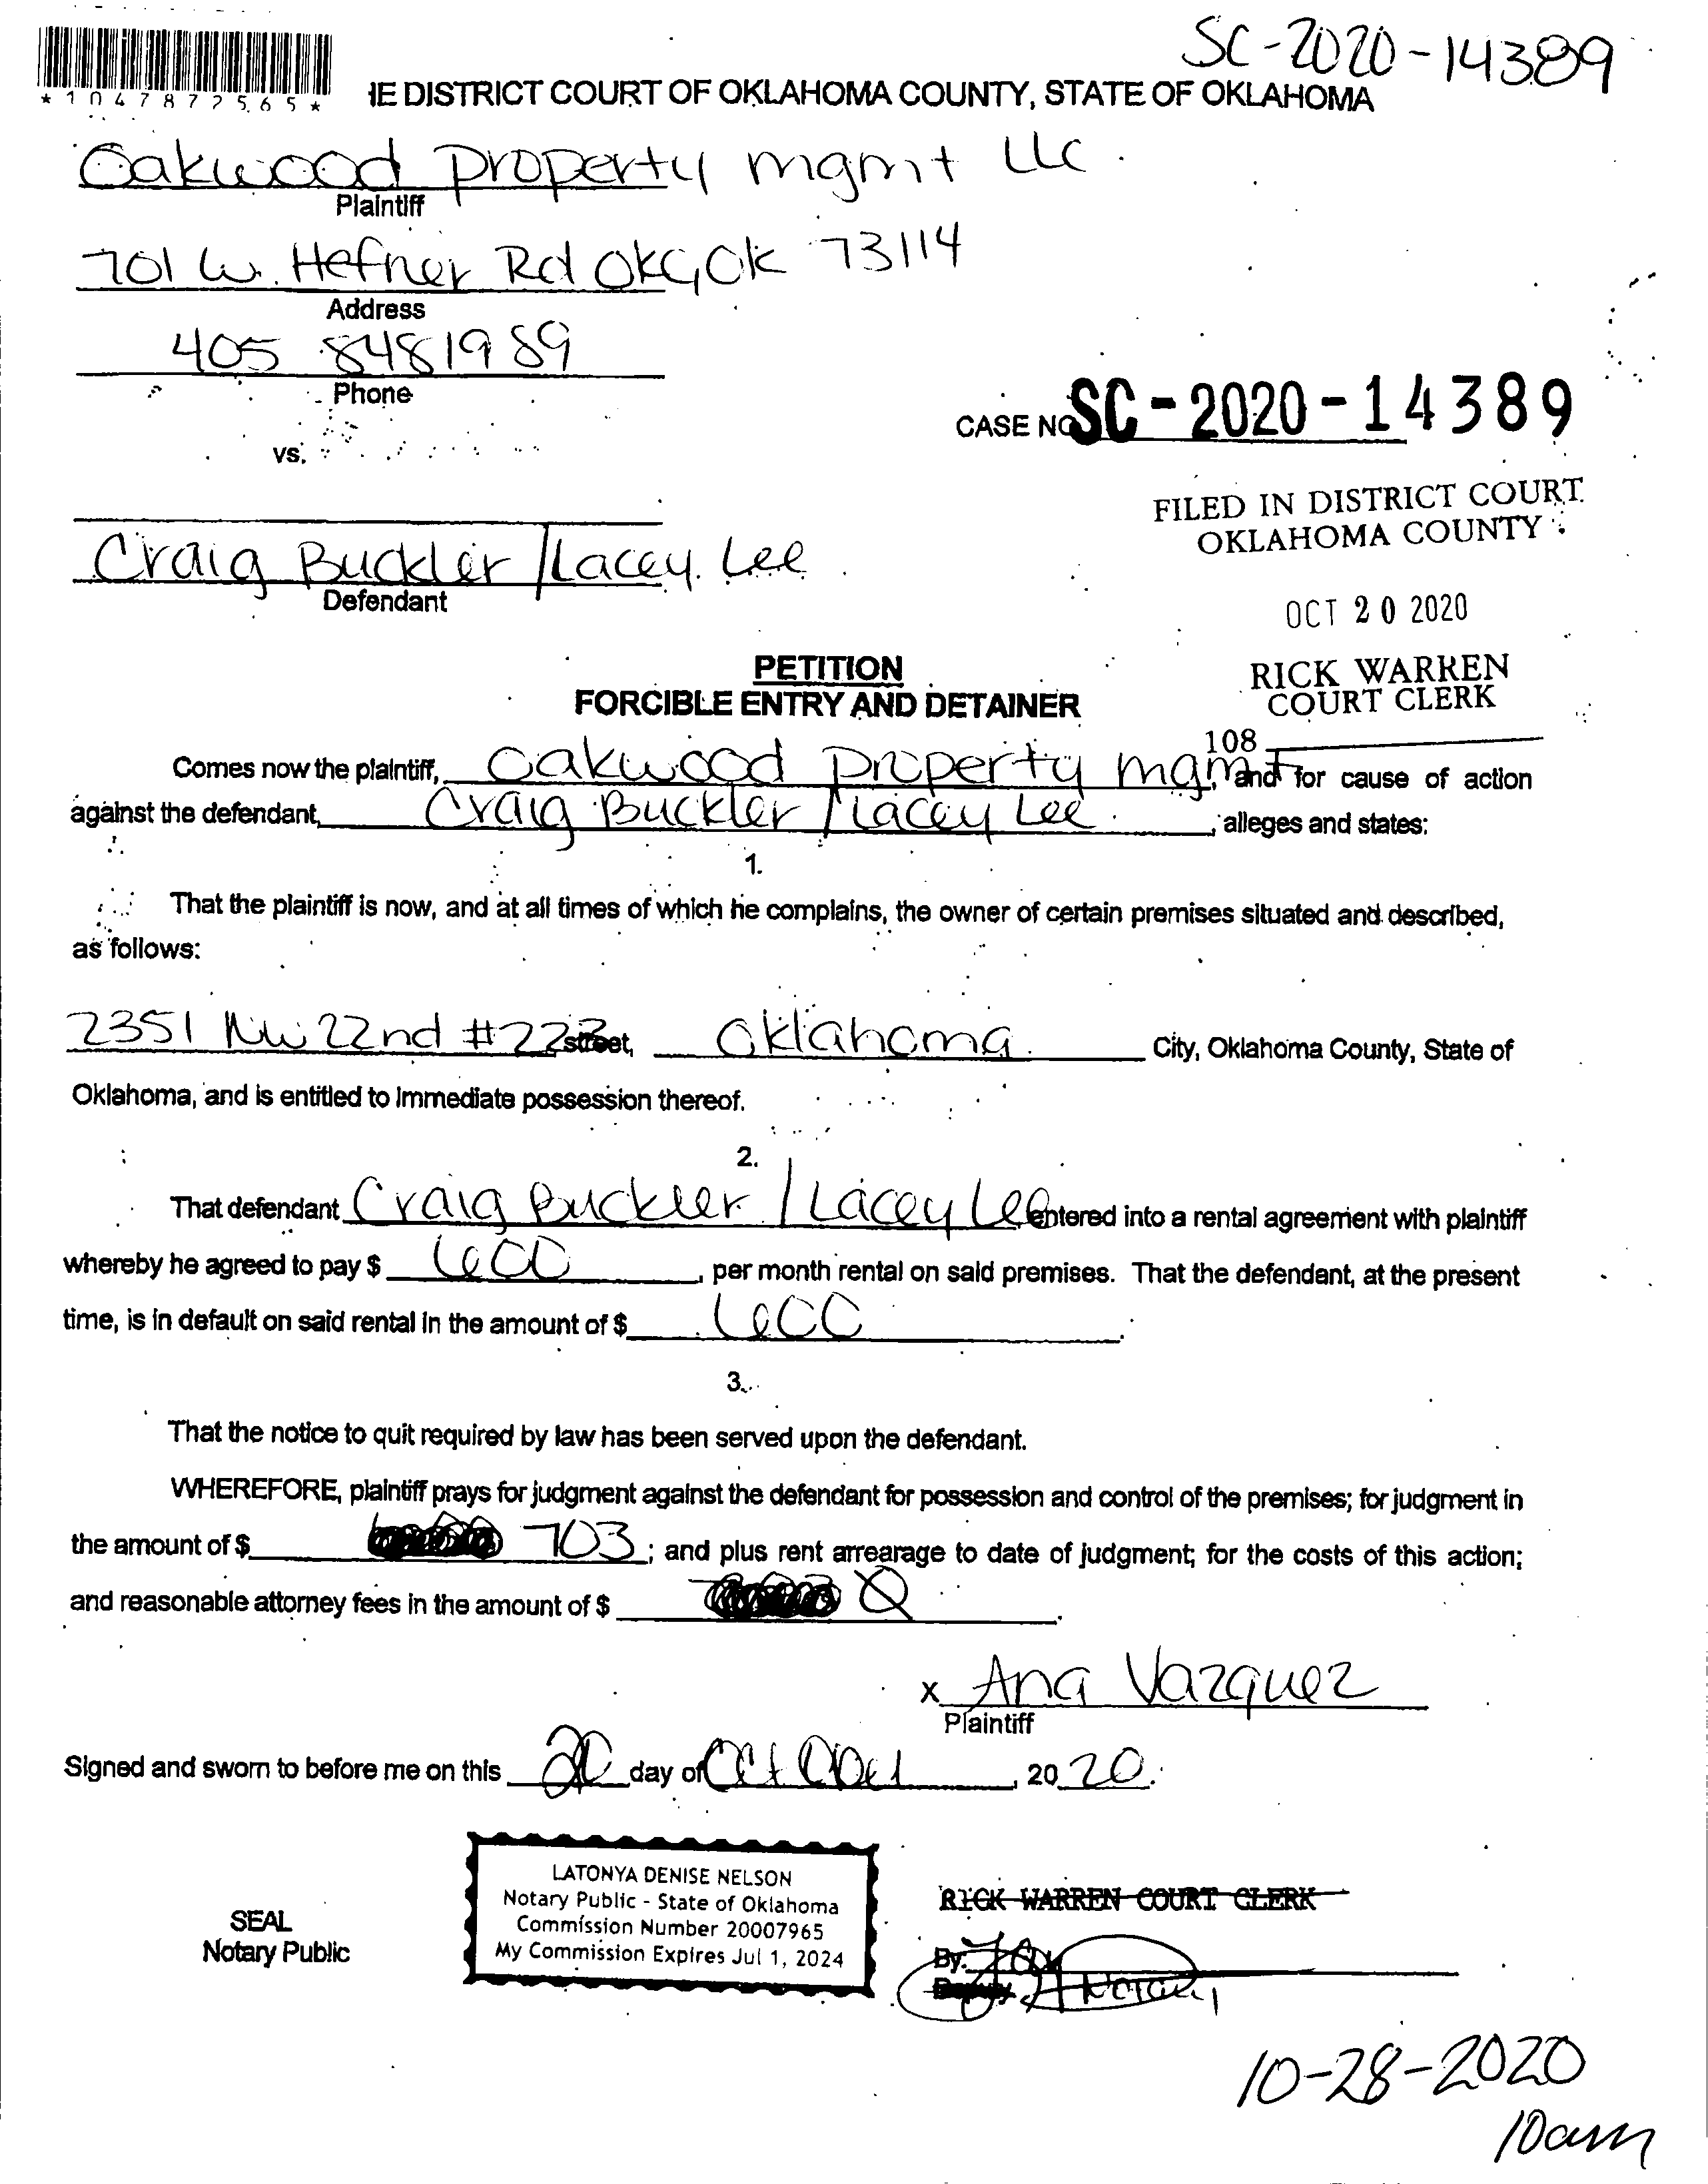 SC-2020-14389
*1047872565*
IE DISTRICT COURT OF OKLAHOMA COUNTY, STATE OF OKLAHOMA
Oakwood property mgmt LLC
Plaintiff
701 W. Hefner Rd OKC, OK 73114
Address
405 8481989
Phone
CASE NO SC-2020-14389
vs.
FILED IN DISTRICT COURT
OKLAHOMA COUNTY
Craig Buckler / Lacey Lee
Defendant
OCT 20 2020
PETITION
FORCIBLE ENTRY AND DETAINER
RICK WARREN
COURT CLERK
108
Comes now the plaintiff, Oakwood property mgmt, and for cause of action
against the defendant, Craig Buckler / Lacey Lee, alleges and states:
1.
That the plaintiff is now, and at all times of which he complains, the owner of certain premises situated and described,
as follows:
2351 NW 22nd #223 street, Oklahoma City, Oklahoma County, State of
Oklahoma, and is entitled to immediate possession thereof.
2.
That defendant Craig Buckler / Lacey Lee entered into a rental agreement with plaintiff
whereby he agreed to pay $ 600, per month rental on said premises. That the defendant, at the present
time, is in default on said rental in the amount of $ 600.
3.
That the notice to quit required by law has been served upon the defendant.
WHEREFORE, plaintiff prays for judgment against the defendant for possession and control of the premises; for judgment in
the amount of $ 703; and plus rent arrearage to date of judgment; for the costs of this action;
and reasonable attorney fees in the amount of $ 0.
x Ana Vazquez
Plaintiff
Signed and sworn to before me on this 20 day of October, 2020.
LATONYA DENISE NELSON
Notary Public - State of Oklahoma
Commission Number 20007965
My Commission Expires Jul 1, 2024
SEAL
Notary Public
RICK WARREN COURT CLERK
By:
Deputy
Notary
10-28-2020
10am